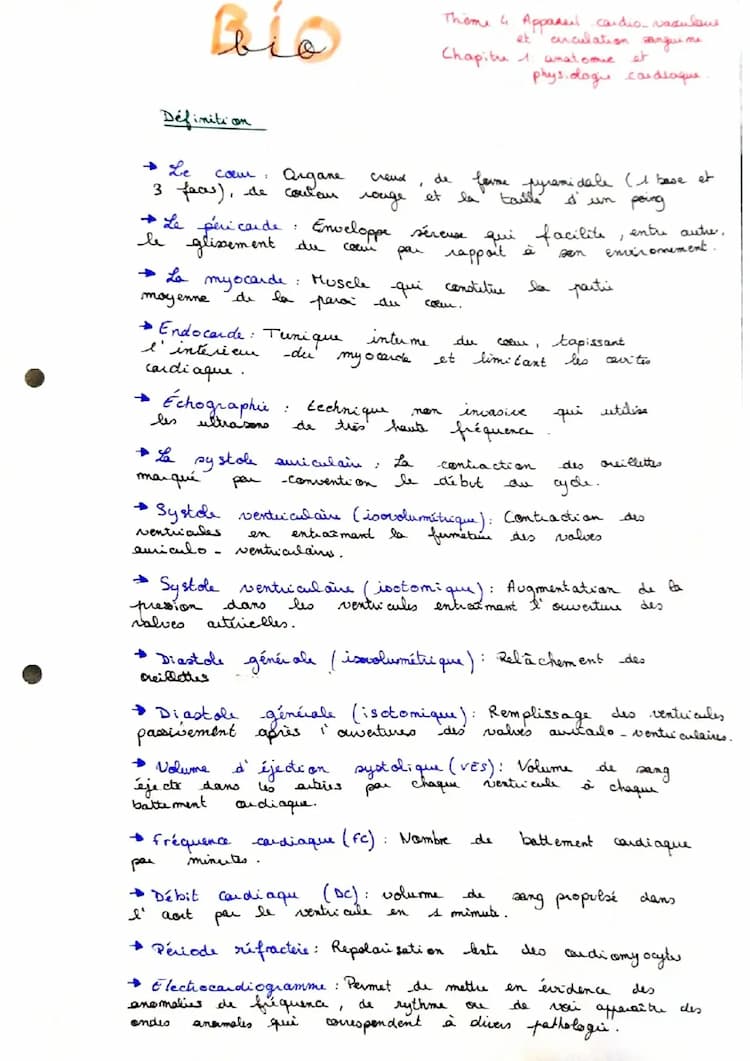 BIO
bio
Thème 4 Appareil cardio-vasculaire
et circulation sanguine
Chapitre 1 anatomie et
physiologie cardiaque.
Définition
→ Le cœur : Organe creux, de forme pyramidale (1 base et
3 faces), de couleur rouge et la taille d'un poing
→ Le péricarde : Enveloppe séreuse qui facilite, entre autre,
le glissement du cœur par rapport à son environnement.
→ Le myocarde : Muscle qui constitue la partie
moyenne de la paroi du cœur.
→ Endocarde : Tunique interne du cœur, tapissant
l'intérieur du myocarde et limitant les cavités
cardiaque.
→ Échographie : technique non invasive qui utilise
les ultrasons de très haute fréquence.
→ La systole auriculaire : La contraction des oreillettes
marqué par convention le début du cycle.
→ Systole ventriculaire (isovolumétrique) : Contraction des
ventricules en entraînant la fermeture des valves
auriculo-ventriculaires.
→ Systole ventriculaire (isotonique) : Augmentation de la
pression dans les ventricules entraînant l'ouverture des
valves artérielles.
→ Diastole générale (isovolumétrique) : Relâchement des
oreillettes
→ Diastole générale (isotonique) : Remplissage des ventricules
passivement après l'ouvertures des valves auriculo-ventriculaires.
→ Volume d'éjection systolique (VES) : Volume de sang
éjecté dans les artères par chaque ventricule à chaque
battement cardiaque.
→ Fréquence cardiaque (FC) : Nombre de battement cardiaque
par minutes.
→ Débit cardiaque (DC) : volume de sang propulsé dans
l'aort par le ventricule en 1 minute.
→ Période réfractaire : Repolarisation lente des cardiomyocytes
→ Électrocardiogramme : Permet de mettre en évidence des
anomalies de fréquence, de rythme ou de voir apparaître des
ondes anormales qui correspondent à divers pathologie.